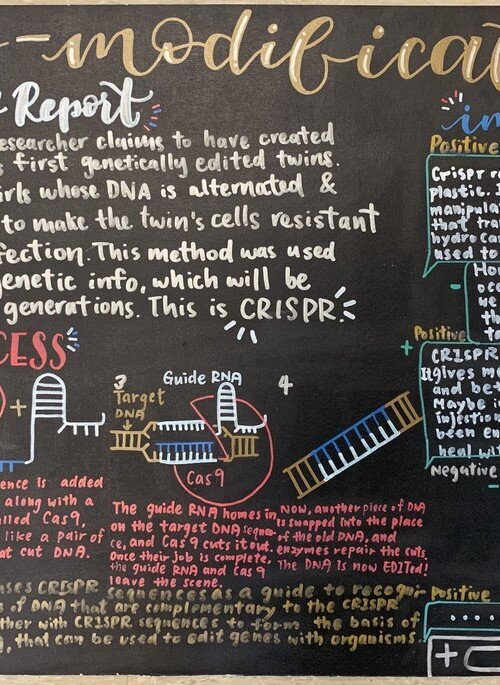 -modificat
Report
esearcher claims to have created
s first genetically edited twins.
irls whose DNA is alternated &
to make the twin's cells resistant
fection. This method was used
genetic info, which will be
generations. This is CRISPR.
CESS
+
3
Target
DNA
Guide RNA
Cas9
4
ence is added
along with a
lled Cas9,
like a pair of
at cut DNA.
The guide RNA homes in
on the target DNA sequen-
ce, and Cas9 cuts it out.
Once their job is complete,
the guide RNA and Cas9
leave the scene.
Now, another piece of DNA
is swapped into the place
of the old DNA, and
enzymes repair the cuts.
The DNA is now EDITed!
ses CRISPR sequences as a guide to recogni-
s of DNA that are complementary to the CRISPR
ther with CRISPR sequences to form the basis of
, that can be used to edit genes with organisms.
im
Positive
Crispr r
plastic.
manipula
that tra
hydrocar
used to
-
Ho
occ
us
th
ta
Positive
+
CRISPR
It gives me
and be
Maybe i
injection
been en
heal wi
Negative -
+